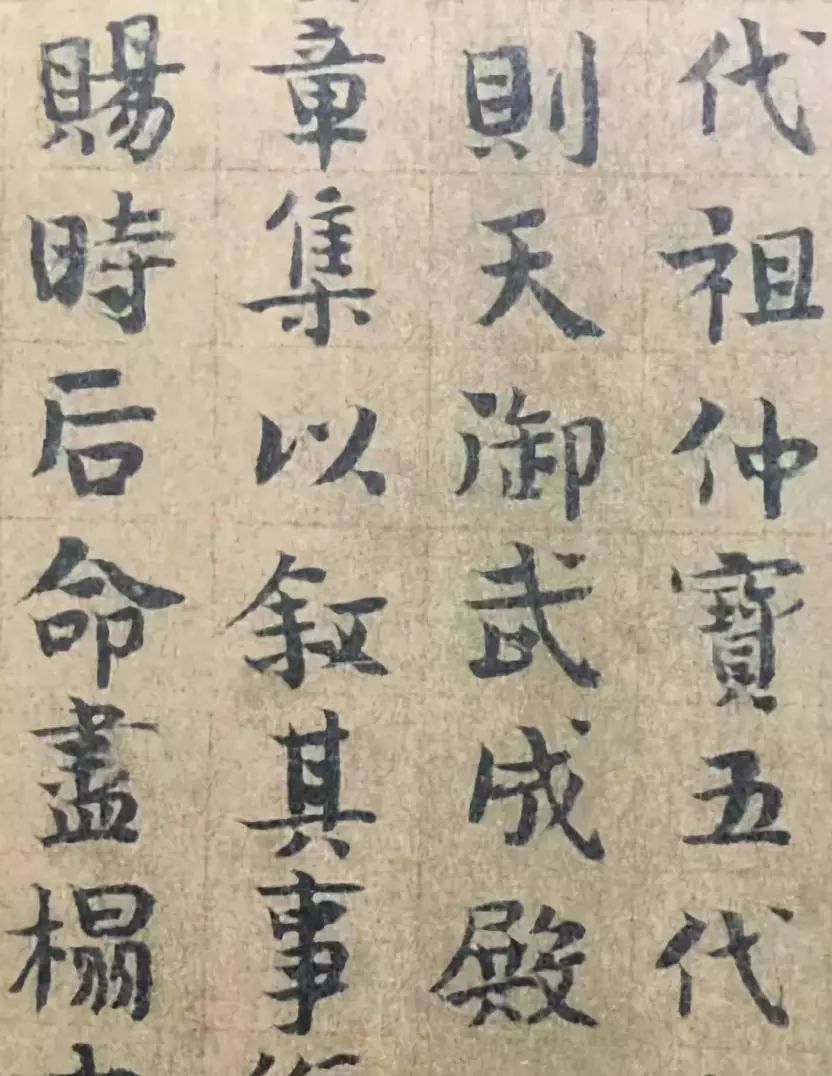 代祖仲寶五代
則天御武成殿
章集以叙其事
賜時后命盡榻